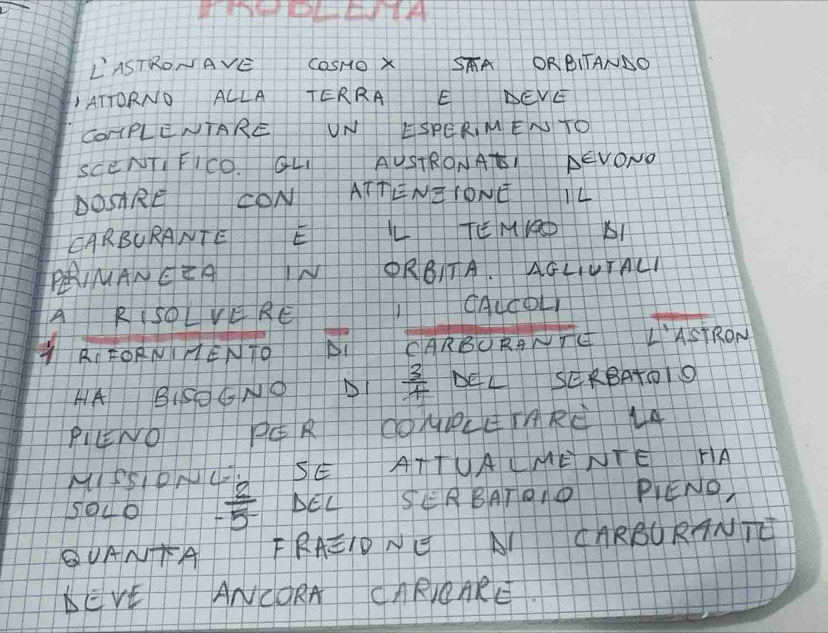 PROBLEMA
L'ASTRONAVE COSMO X STA ORBITANDO
ATTORNO ALLA TERRA E DEVE
COMPLENTARE UN ESPERIMENTO
SCENTIFICO. GLI AUSTRONATI DEVONO
DOSARE CON ATTENZIONE IL
CARBURANTE E IL TEMPO DI
PERIMANEZA IN ORBITA. AGLIUTALI
A RISOLVERE I CALCOLI
1 RIFORNIMENTO DI CARBURANTE L'ASTRON
HA BISOGNO DI DEL SERBATOIO
PIENO PER COMPLETARE LA
MISSIONE. SE ATTUALMENTE HA
SOLO 2/5 DEL SERBATOIO PIENO,
QUANTA FRAZIONE DI CARBURANTE
DEVE ANCORA CARICARE.